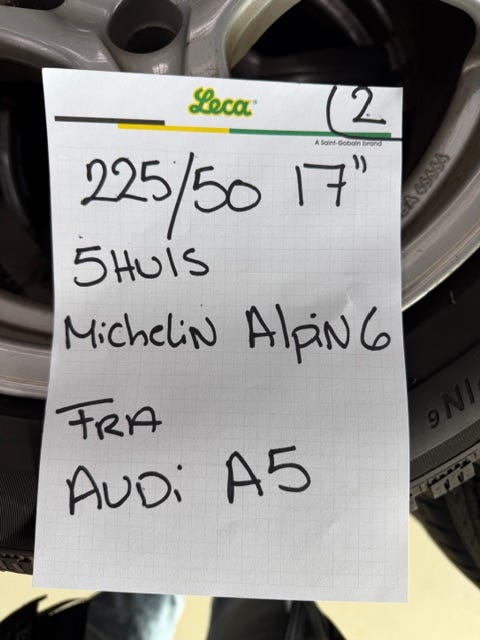 Leca
(2
A Saint-Gobain brand
225/50 17"
5HUIS
MicheliN AlpiN6
FRA
AUDi A5